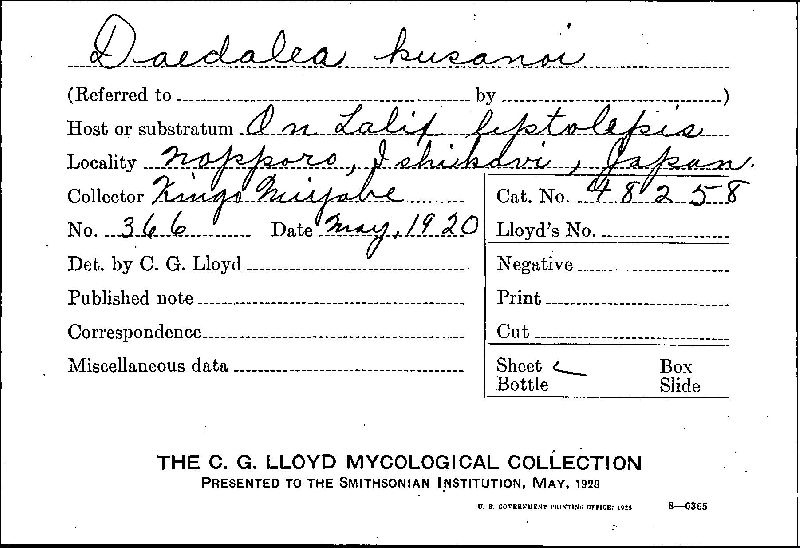 Daedalea kusanoi
(Referred to by )
Host or substratum On Lalix leptolepis
Locality Nopporo, Ishikari, Japan.
Collector Kingo Miyabe
Cat. No. 48258
No. 366 Date May, 1920
Lloyd's No.
Det. by C. G. Lloyd
Negative
Published note
Print
Correspondence
Cut
Miscellaneous data
Sheet Box
Bottle Slide
THE C. G. LLOYD MYCOLOGICAL COLLECTION
PRESENTED TO THE SMITHSONIAN INSTITUTION, MAY, 1928
U. S. GOVERNMENT PRINTING OFFICE: 1928 8—6365